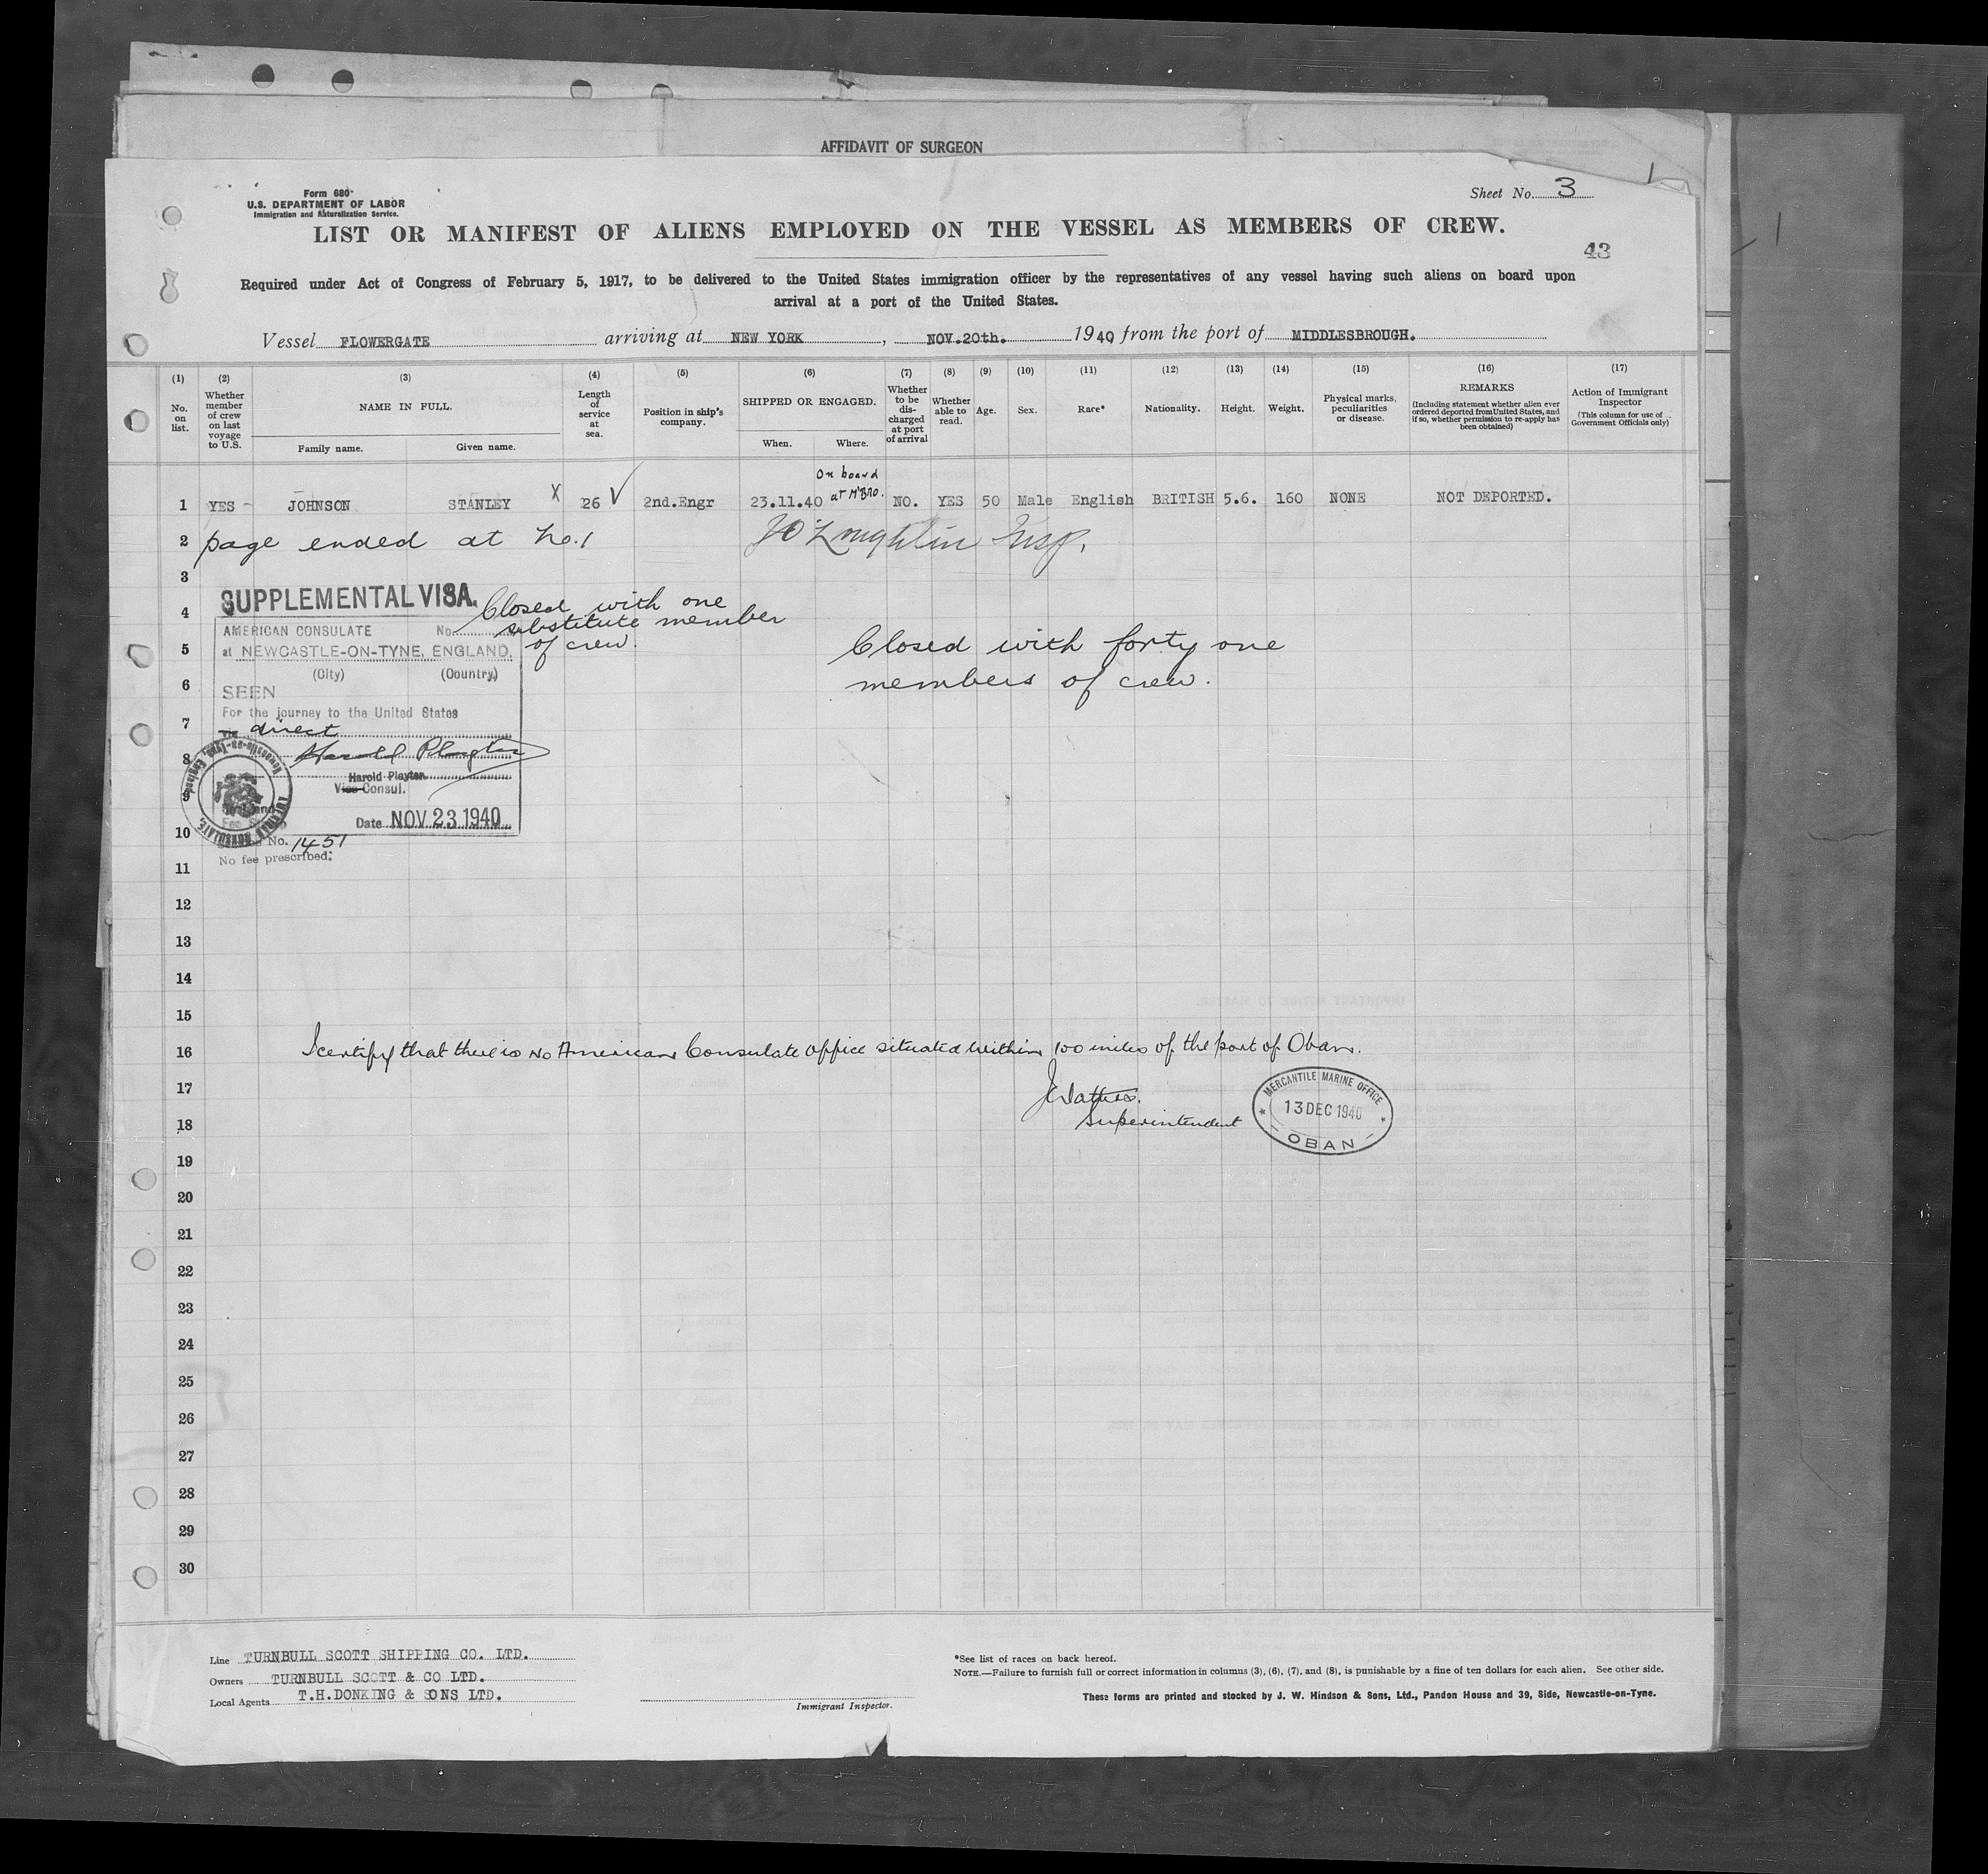 AFFIDAVIT OF SURGEON
Form 680
U.S. DEPARTMENT OF LABOR
Immigration and Naturalization Service.
Sheet No. 3
1
LIST OR MANIFEST OF ALIENS EMPLOYED ON THE VESSEL AS MEMBERS OF CREW.
43
Required under Act of Congress of February 5, 1917, to be delivered to the United States immigration officer by the representatives of any vessel having such aliens on board upon
arrival at a port of the United States.
Vessel FLOWERGATE arriving at NEW YORK, NOV.20th. 1940 from the port of MIDDLESBROUGH.
(1) No. on list.
(2) Whether member of crew on last voyage to U.S.
(3) NAME IN FULL.
Family name. Given name.
(4) Length of service at sea.
(5) Position in ship's company.
(6) SHIPPED OR ENGAGED.
When. Where.
(7) Whether to be dis- charged at port of arrival
(8) Whether able to read.
(9) Age.
(10) Sex.
(11) Race*
(12) Nationality.
(13) Height.
(14) Weight.
(15) Physical marks, peculiarities or disease.
(16) REMARKS
(Including statement whether alien ever ordered deported from United States, and if so, whether permission to re-apply has been obtained)
(17) Action of Immigrant Inspector
(This column for use of Government Officials only)
On board
at M'Bro.
1 YES - JOHNSON STANLEY X 26 √ 2nd.Engr 23.11.40 NO. YES 50 Male English BRITISH 5.6. 160 NONE NOT DEPORTED.
2 page ended at No. 1 JO'Loughlin Insp.
3
SUPPLEMENTAL VISA.
4 Closed with one
substitute member
of crew.
AMERICAN CONSULATE No.
5 at NEWCASTLE-ON-TYNE, ENGLAND.
(City) (Country)
Closed with forty one
members of crew.
6 SEEN
For the journey to the United States
7 via direct
8 Harold Playter
Harold Playter
Vice Consul.
9
Date NOV 23 1940
10
No. 1451
No fee prescribed.
11
12
13
14
15
16 I certify that there is no American Consulate Office situated within 100 miles of the port of Oban.
17
Superintendent
MERCANTILE MARINE OFFICE
13 DEC 1940
OBAN
18
19
20
21
22
23
24
25
26
27
28
29
30
Line TURNBULL SCOTT SHIPPING CO. LTD.
Owners TURNBULL SCOTT & CO LTD.
Local Agents T.H.DONKING & SONS LTD.
Immigrant Inspector.
*See list of races on back hereof.
NOTE.—Failure to furnish full or correct information in columns (3), (6), (7), and (8), is punishable by a fine of ten dollars for each alien. See other side.
These forms are printed and stocked by J. W. Hindson & Sons, Ltd., Pandon House and 39, Side, Newcastle-on-Tyne.